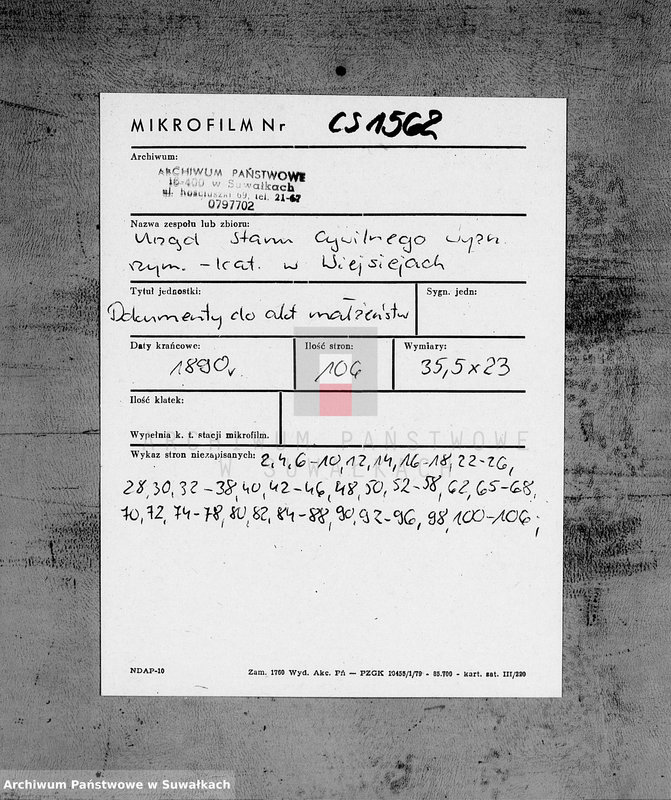 MIKROFILM Nr CS 1562
Archiwum:
ARCHIWUM PAŃSTWOWE
16-400 w Suwałkach
ul. Kościuszki 69, tel. 21-67
0797702
Nazwa zespołu lub zbioru:
Urząd Stanu Cywilnego wyzn.
rzym.-kat. w Wiejsiejach
Tytuł jednostki:
Sygn. jedn:
Dokumenty do akt małżeństw
Daty krańcowe:
1890r.
Ilość stron:
106
Wymiary:
35,5 x 23
Ilość klatek:
Wypełnia k. t. stacji mikrofilm.
ARCHIWUM PAŃSTWOWE
W SUWAŁKACH
Wykaz stron niezapisanych: 2,4,6-10,12,14,16-18,22-26,
28,30,32-38,40,42-46,48,50,52-58,62,65-68,
70,72,74-78,80,82,84-88,90,92-96,98,100-106;
NDAP-10
Zam. 1760 Wyd. Akc. Pń — PZGK 10455/1/79 - 85.700 - kart. sat. III/220
Archiwum Państwowe w Suwałkach